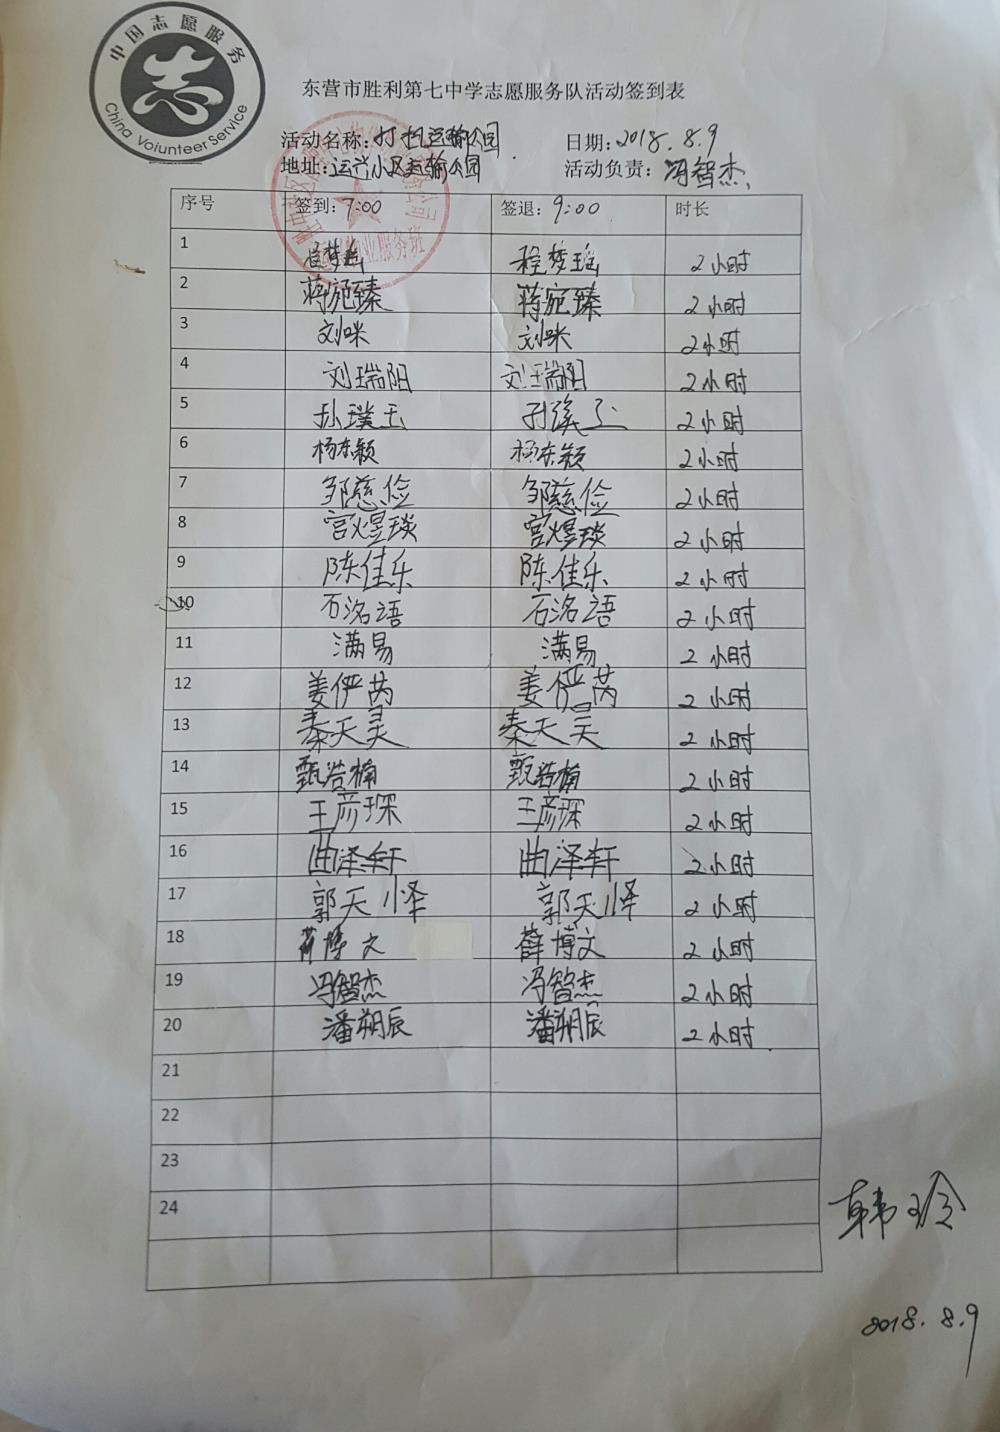 中国志愿服务
志
China Volunteer Service
东营市胜利第七中学志愿服务队活动签到表
活动名称：打扫运输公园 日期：2018.8.9
地址：运兴小区运输公园 活动负责：冯智杰
序号 签到：7:00 签退：9:00 时长
1 程梦瑶 程梦瑶 2小时
2 蒋宛臻 蒋宛臻 2小时
3 刘咪 刘咪 2小时
4 刘瑞阳 刘瑞阳 2小时
5 孙璞玉 孙璞玉 2小时
6 杨东颖 杨东颖 2小时
7 邹慈俭 邹慈俭 2小时
8 宫煜琰 宫煜琰 2小时
9 陈佳乐 陈佳乐 2小时
10 石洺语 石洺语 2小时
11 满易 满易 2小时
12 姜俨芮 姜俨芮 2小时
13 秦天昊 秦天昊 2小时
14 甄浩楠 甄浩楠 2小时
15 王彦琛 王彦琛 2小时
16 曲泽轩 曲泽轩 2小时
17 郭天怿 郭天怿 2小时
18 薛博文 薛博文 2小时
19 冯智杰 冯智杰 2小时
20 潘朔辰 潘朔辰 2小时
21
22
23
24
韩玲
2018.8.9